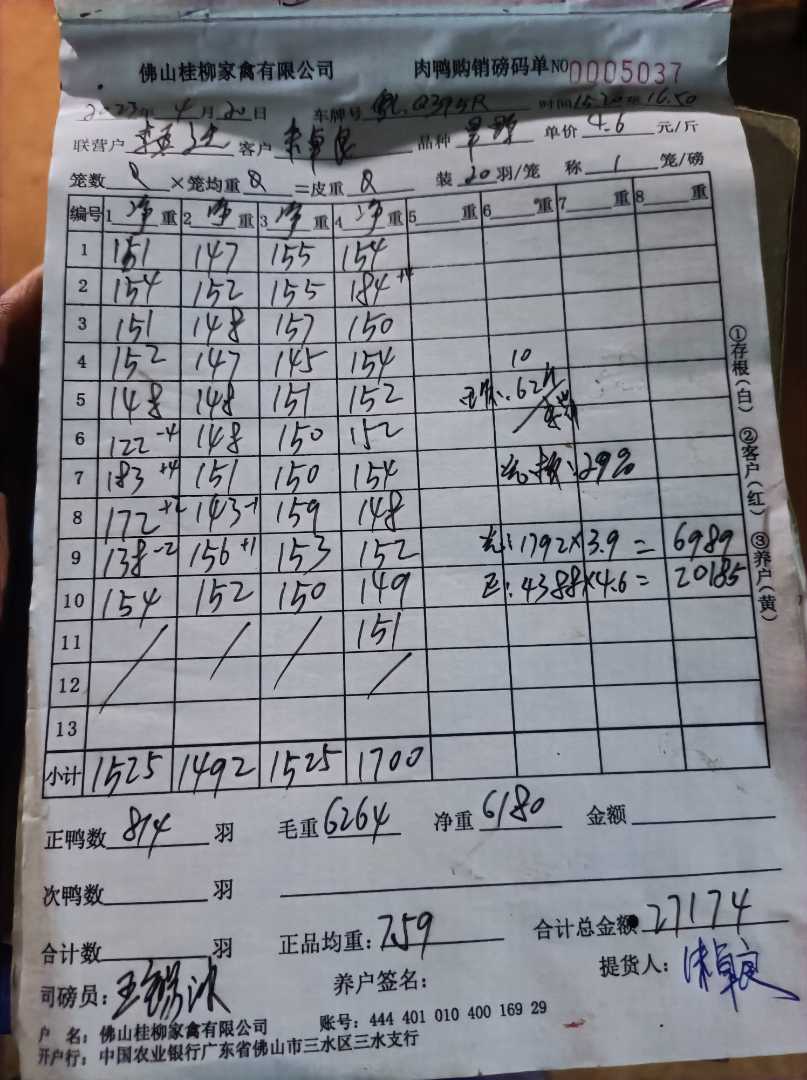 佛山桂柳家禽有限公司 肉鸭购销磅码单 NO 0005037
2023年 4月 20日 车牌号 Q395R 时间15.20至16.50
联营户 客户 朱卓良 品种 单价 4.6 元/斤
笼数 × 笼均重 = 皮重 装 20 羽/笼 称 1 笼/磅
编号 1 净 重 2 净 重 3 净 重 4 净 重 5 重 6 重 7 重 8 重
1 151 147 155 154
2 154 152 155 184+4
3 151 148 157 150
4 152 147 145 154 10
5 148 148 151 152 62
6 122-4 148 150 152
7 183+4 151 150 154 29%
8 172+2 143-1 159 148
9 138-2 156+1 153 152 1792×3.9=6989
10 154 152 150 149 正:4388×4.6=20185
11 151
12
13
小计 1525 1492 1525 1700
正鸭数 814 羽 毛重 6264 净重 6180 金额
次鸭数 羽
合计数 羽 正品均重: 759 合计总金额 27174
司磅员: 养户签名: 提货人: 朱卓良
户 名: 佛山桂柳家禽有限公司 账号: 444 401 010 400 169 29
开户行: 中国农业银行广东省佛山市三水区三水支行
①存根(白) ②客户(红) ③养户(黄)